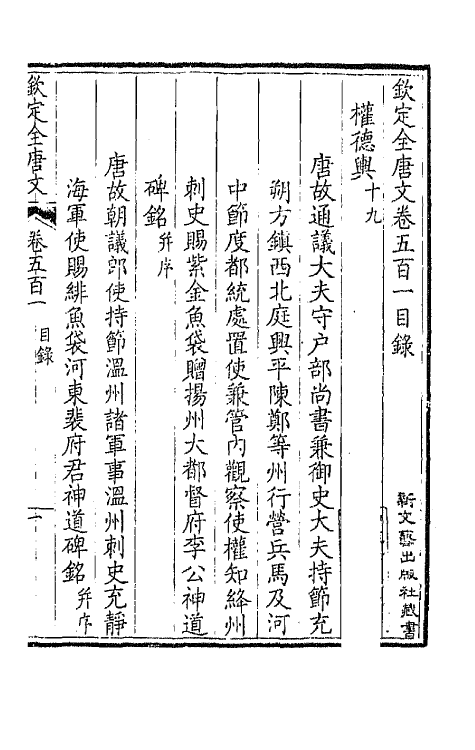 欽定全唐文卷五百一目錄
新文藝出版社藏書
權德輿十九
唐故通議大夫守户部尚書兼御史大夫持節充
朔方鎮西北庭興平陳鄭等州行營兵馬及河
中節度都統處置使兼管內觀察使權知絳州
刺史賜紫金魚袋贈揚州大都督府李公神道
碑銘并序
唐故朝議郎使持節溫州諸軍事溫州刺史充靜
海軍使賜緋魚袋河東裴府君神道碑銘并序
欽定全唐文
卷五百一
目錄
一